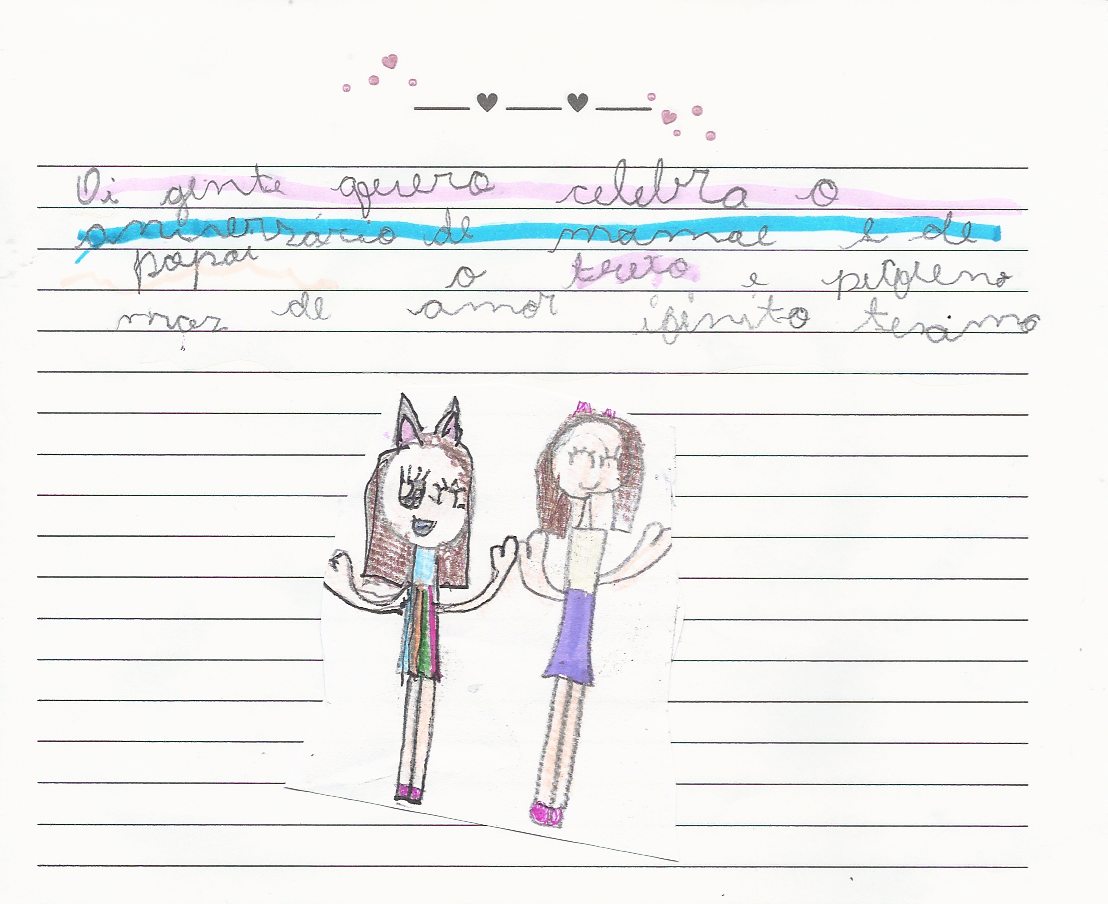 Oi gente quero celebra o
aniversário de mamae e de
papai o texto e peqeno
maz de amor ifinito tesamo